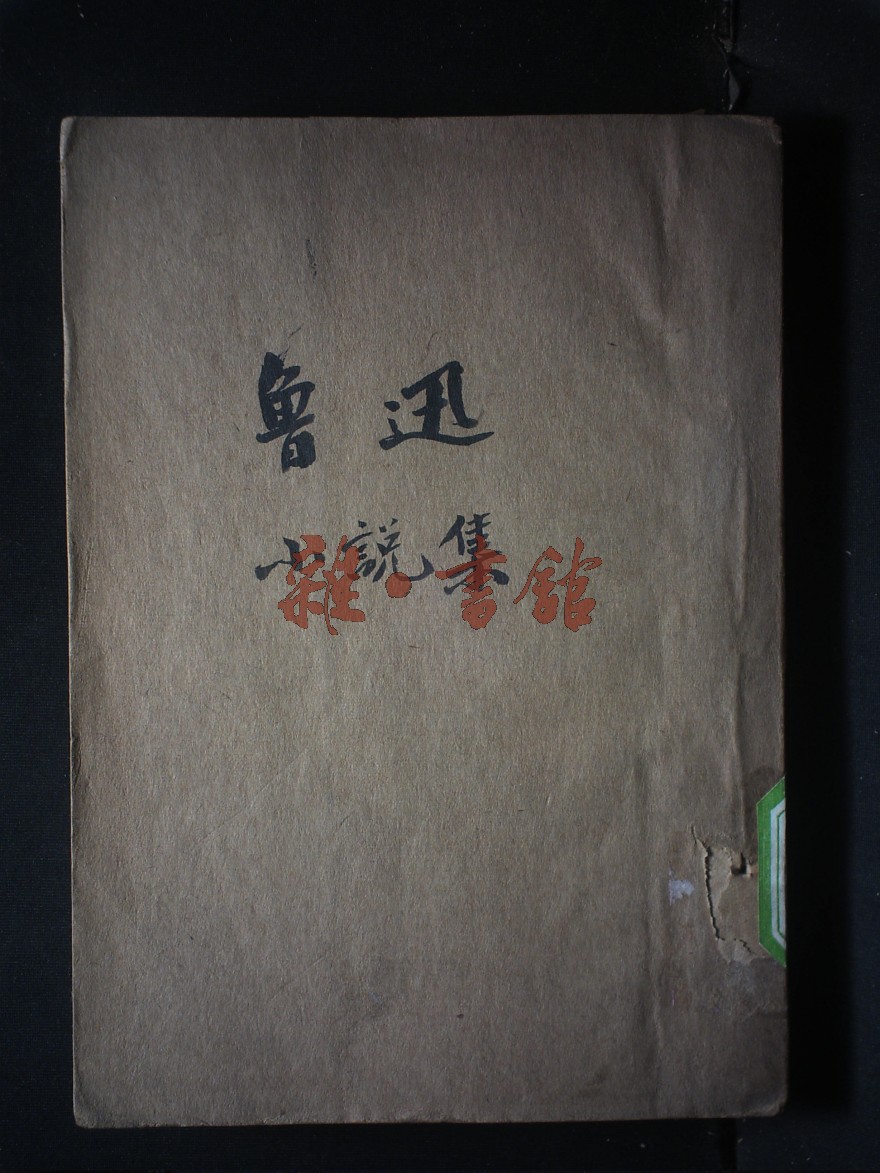 魯迅
小説集
雜·書館